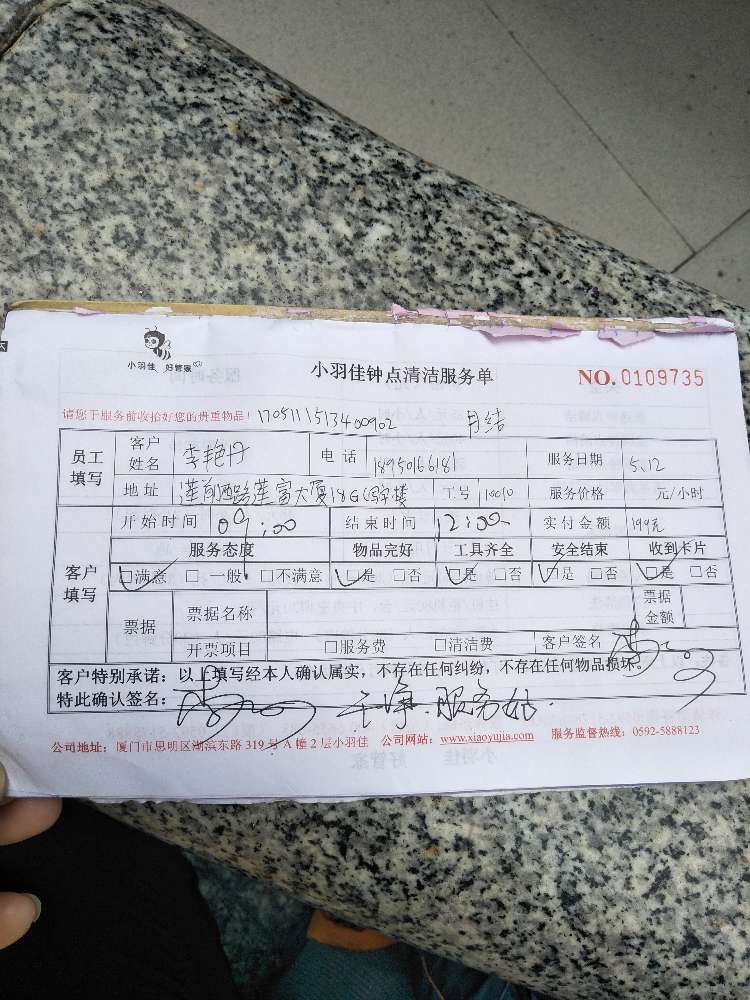 小羽佳 好管家
小羽佳钟点清洁服务单
NO. 0109735
请您于服务前收拾好您的贵重物品! 1705111513400902 月结
员工填写 客户姓名 李艳丹 电话 18950166181 服务日期 5.12
地址 莲前西路莲富大厦18G写字楼 工号 10010 服务价格 元/小时
客户填写 开始时间 09:00 结束时间 12:00 实付金额 199元
服务态度 物品完好 工具齐全 安全结束 收到卡片
□满意 □一般 □不满意 □是 □否 □是 □否 □是 □否 □是 □否
票据 票据名称 票据金额
开票项目 □服务费 □清洁费 客户签名
客户特别承诺:以上填写经本人确认属实,不存在任何纠纷,不存在任何物品损坏。
特此确认签名: 干净.服务好.
公司地址:厦门市思明区湖滨东路 319 号 A 幢 2 层小羽佳 公司网站:www.xiaoyujia.com 服务监督热线:0592-5888123